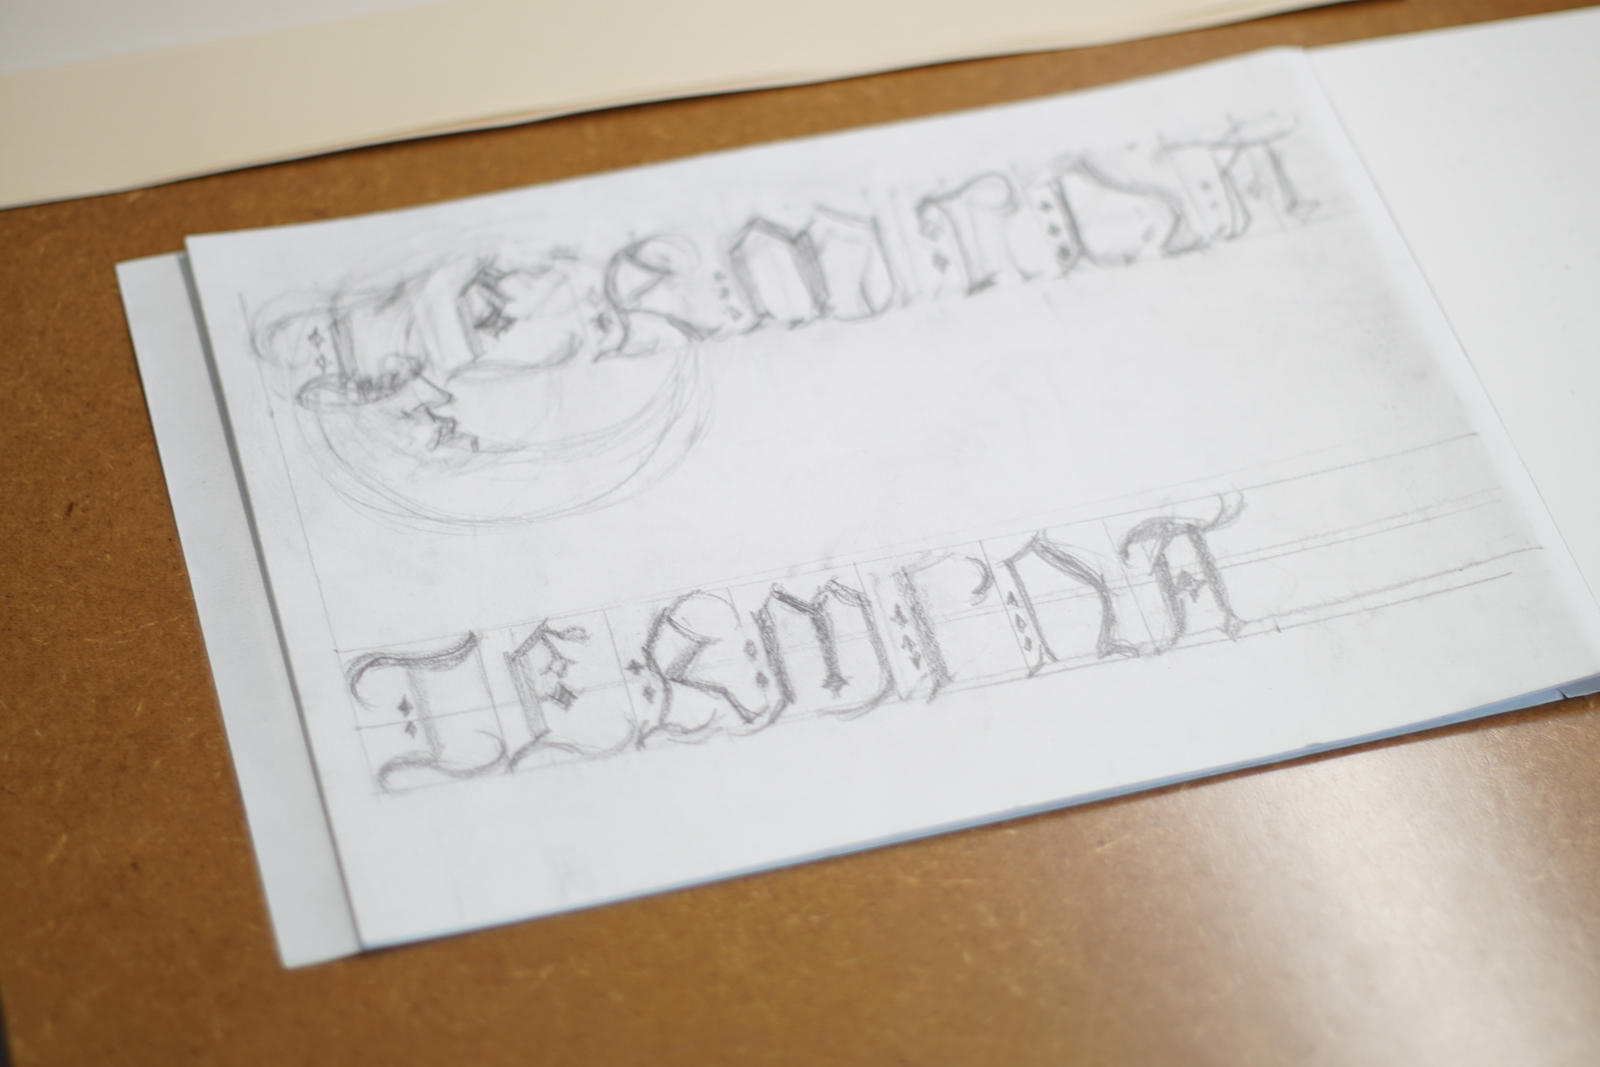 TERMINA
TERMINA